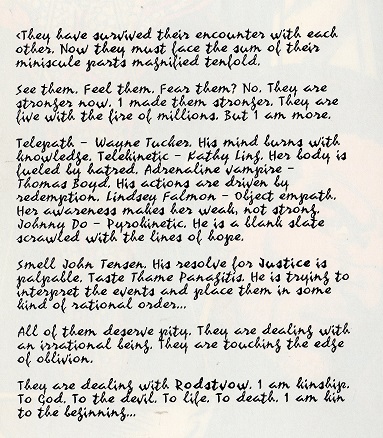 <They have survived their encounter with each
other. Now they must face the sum of their
miniscule parts magnified tenfold.
See them. Feel them. Fear them? No. They are
stronger now. I made them stronger. They are
five with the fire of millions. But I am more.
Telepath - Wayne Tucker. His mind burns with
knowledge. Telekinetic - Kathy Ling. Her body is
fueled by hatred. Adrenaline vampire -
Thomas Boyd. His actions are driven by
redemption. Lindsey Falmon - Object empath.
Her awareness makes her weak, not strong.
Johnny Do - Pyrokinetic. He is a blank slate
scrawled with the lines of hope.
Smell John Tensen. His resolve for Justice is
palpable. Taste Thame Panagitis. He is trying to
interpret the events and place them in some
kind of rational order...
All of them deserve pity. They are dealing with
an irrational being. They are touching the edge
of oblivion.
They are dealing with Rodstvow. I am kinship.
To God. To the devil. To life. To death. I am kin
to the beginning...